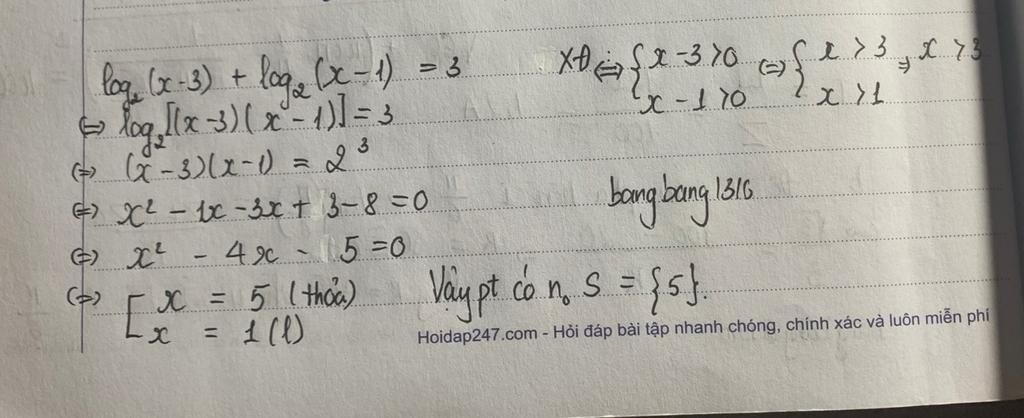 log₂(x-3) + log₂(x-1) = 3
XĐ ⇔ { x-3>0 ⇔ { x > 3 , x > 3
x - 1 > 0 x > 1
⇔ log₂[(x-3)(x-1)] = 3
⇔ (x-3)(x-1) = 2³
⇔ x² - 1x - 3x + 3 - 8 = 0
bangbang1316
⇔ x² - 4x - 5 = 0
⇔ [ x = 5 (thỏa)
x = 1 (l)
Vậy pt có n₀ S = {5}.
Hoidap247.com - Hỏi đáp bài tập nhanh chóng, chính xác và luôn miễn phí